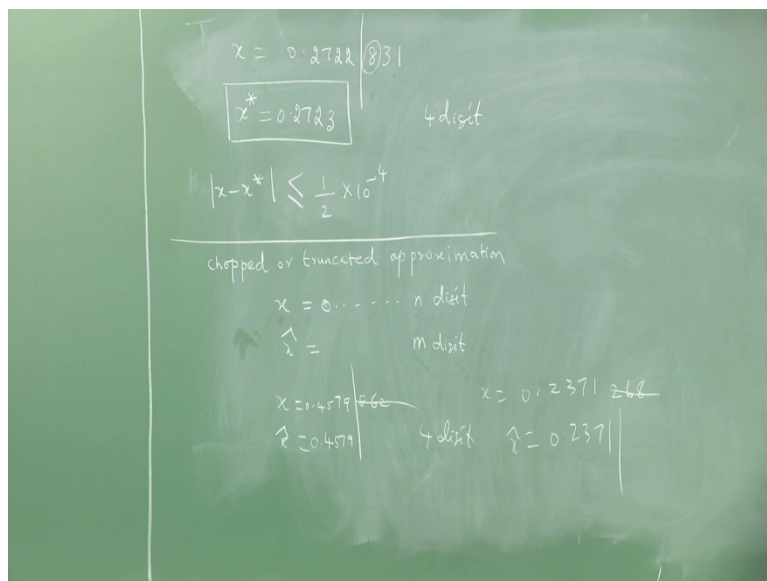 x = 0.2722|831
x* = 0.2723
4 digit
|x-x*| ≤ 1/2 ×10^-4
chopped or truncated approximation
x = 0....... n digit
x̂ = m digit
x = 0.4579|862
x̂ = 0.4579| 4 digit
x = 0.2371 268
x̂ = 0.2371|